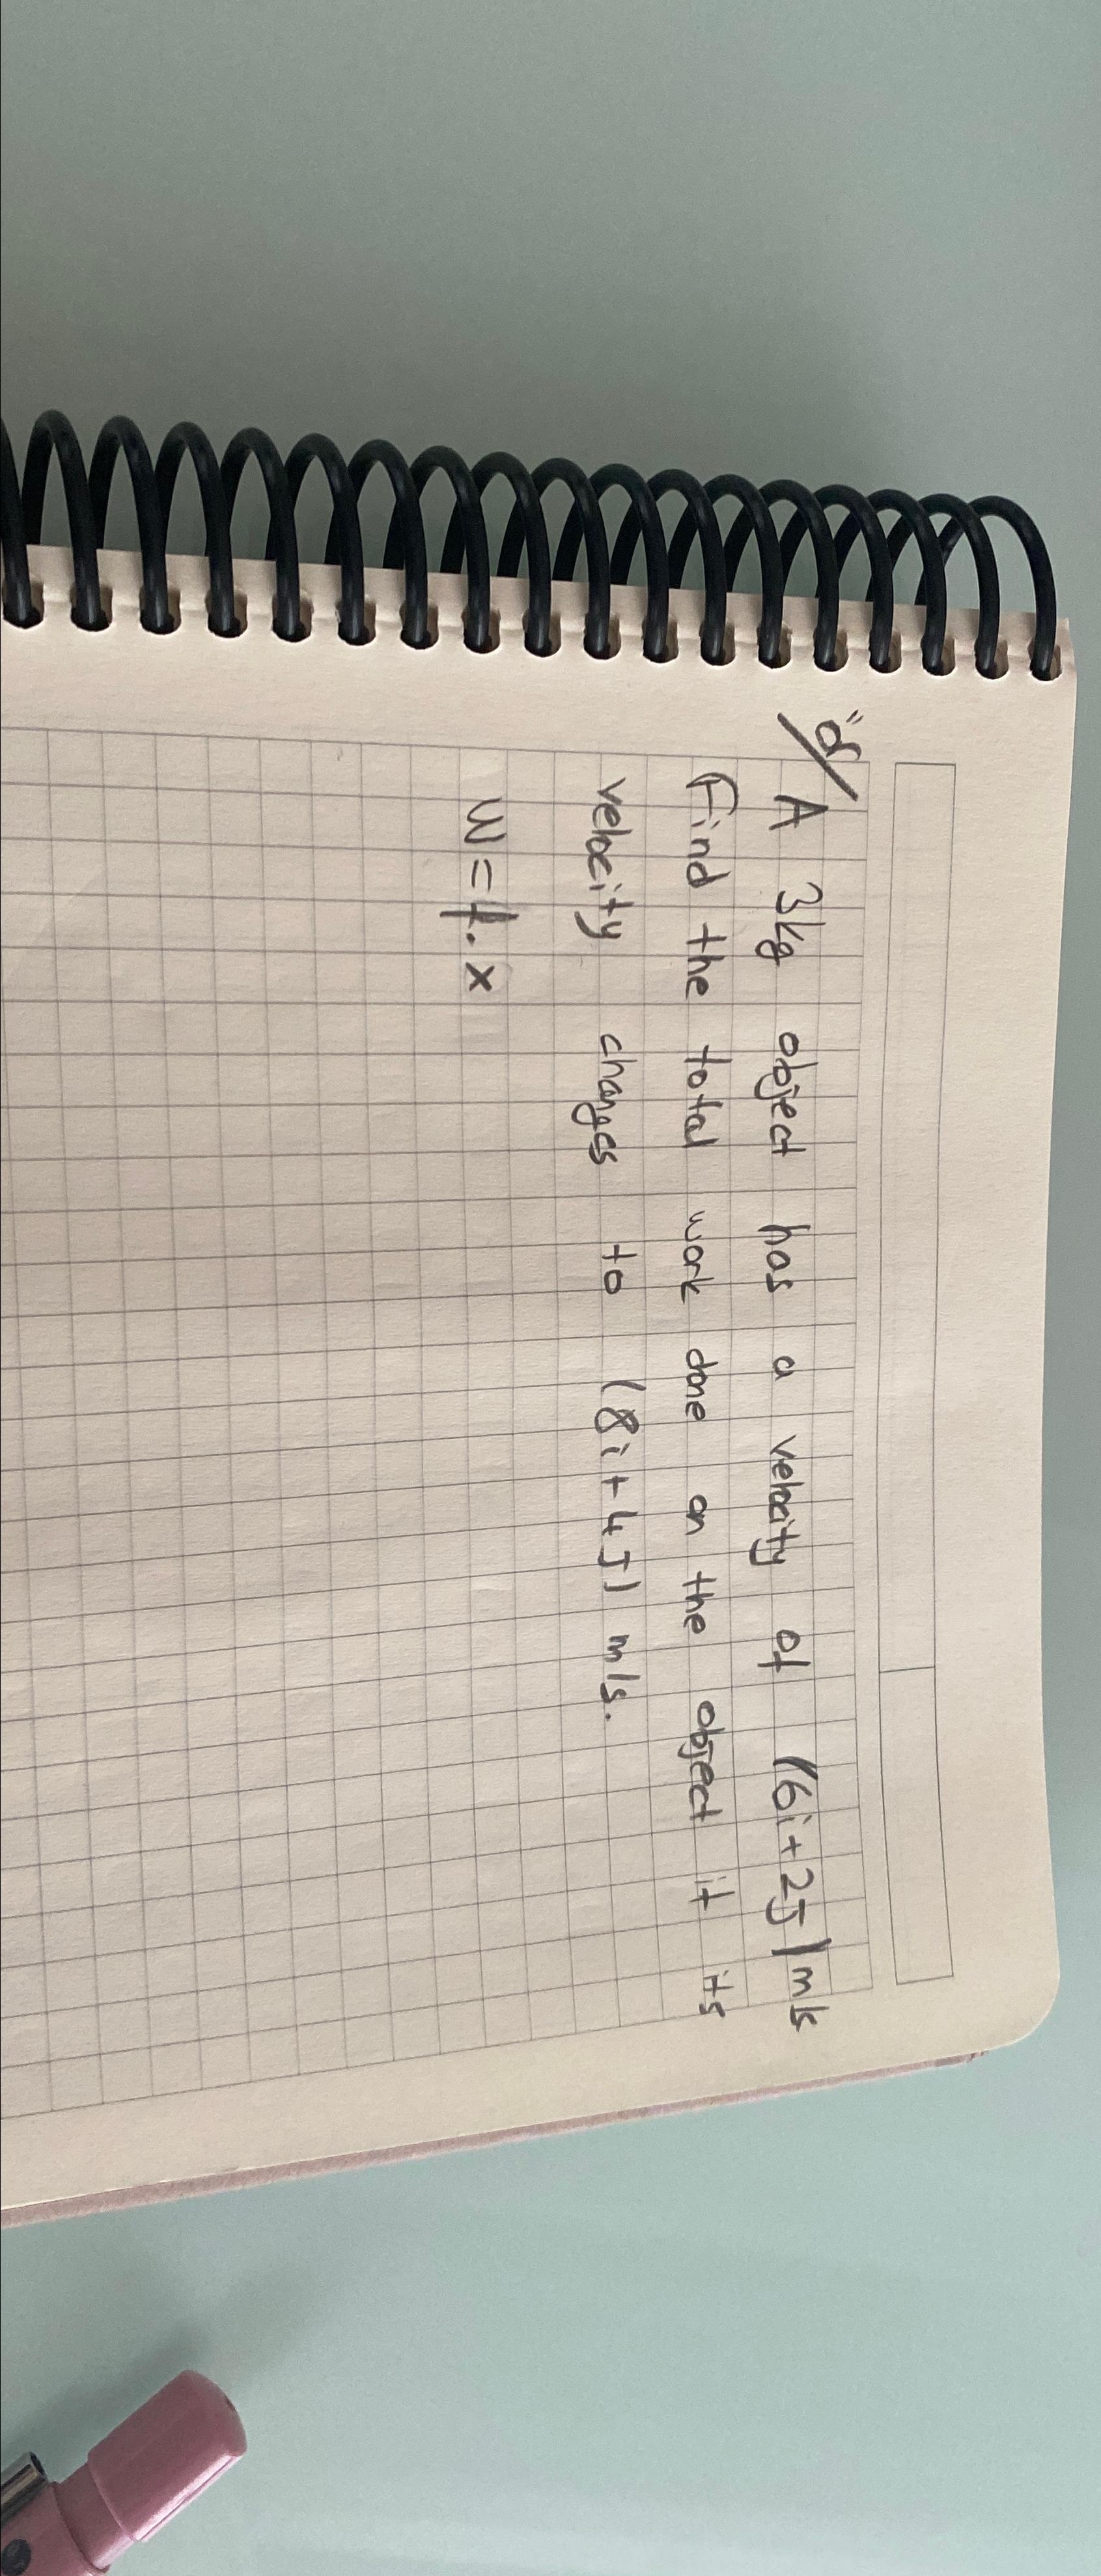 A 3kg object has a velocity of (6i + 2j) m/s
Find the total work done on the object if its
velocity changes to (8i + 4j) m/s.
W = f . x